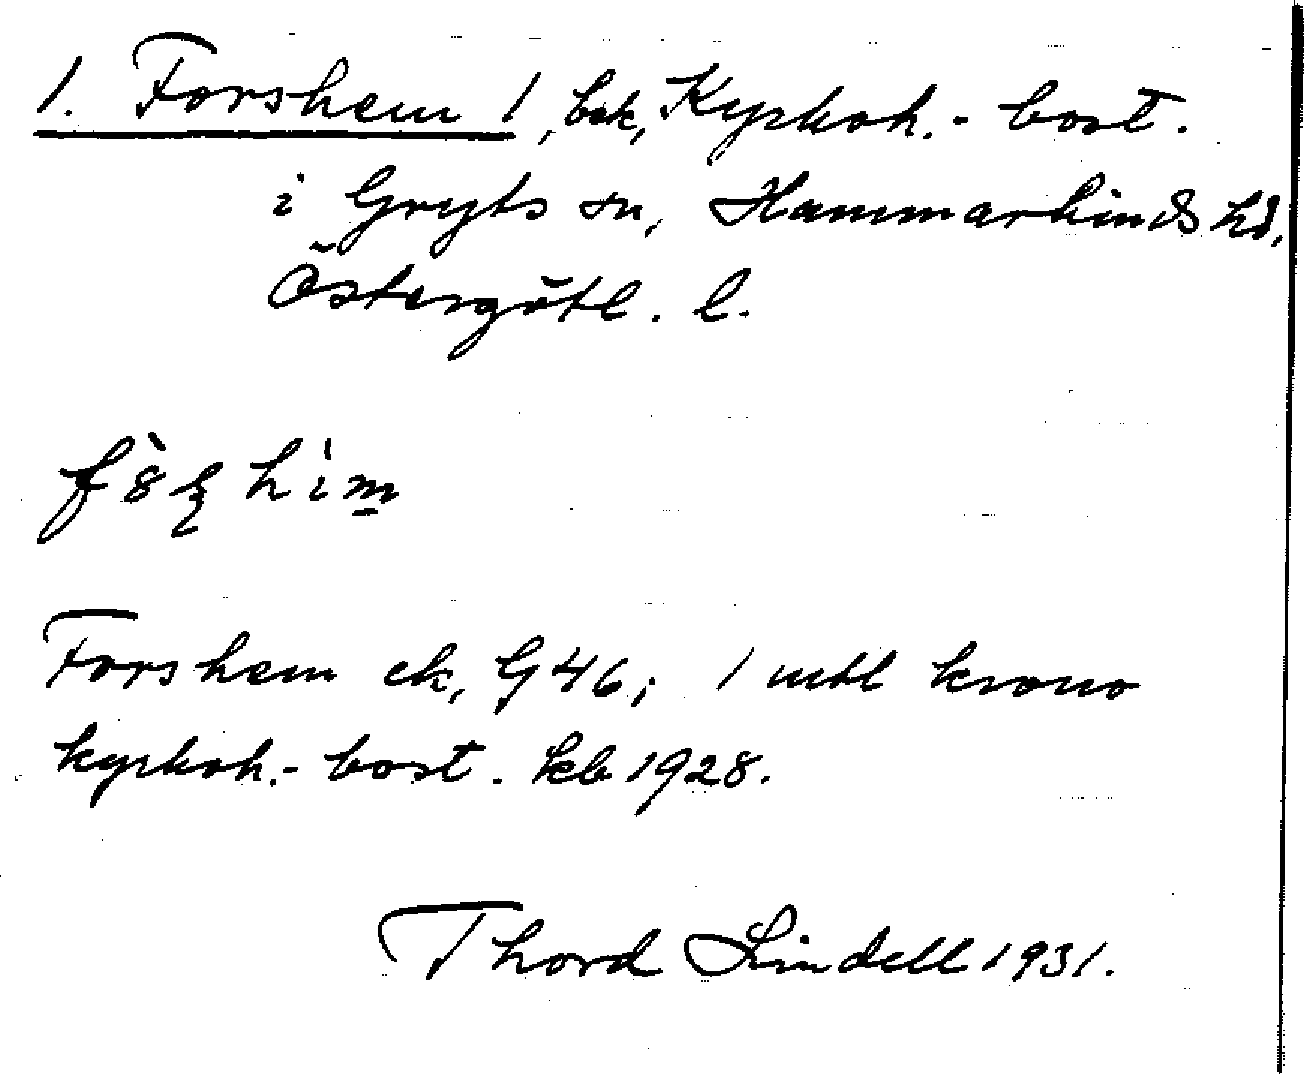 1. Forshem 1, bek, Kyrkoh.- bost.
i Gryts sn, Hammarkinds hd,
Östergötl. l.
Forshem ek, G 46; 1 mtl krono
kyrkoh.- bost. kb 1928.
Thord Lindell 1931.